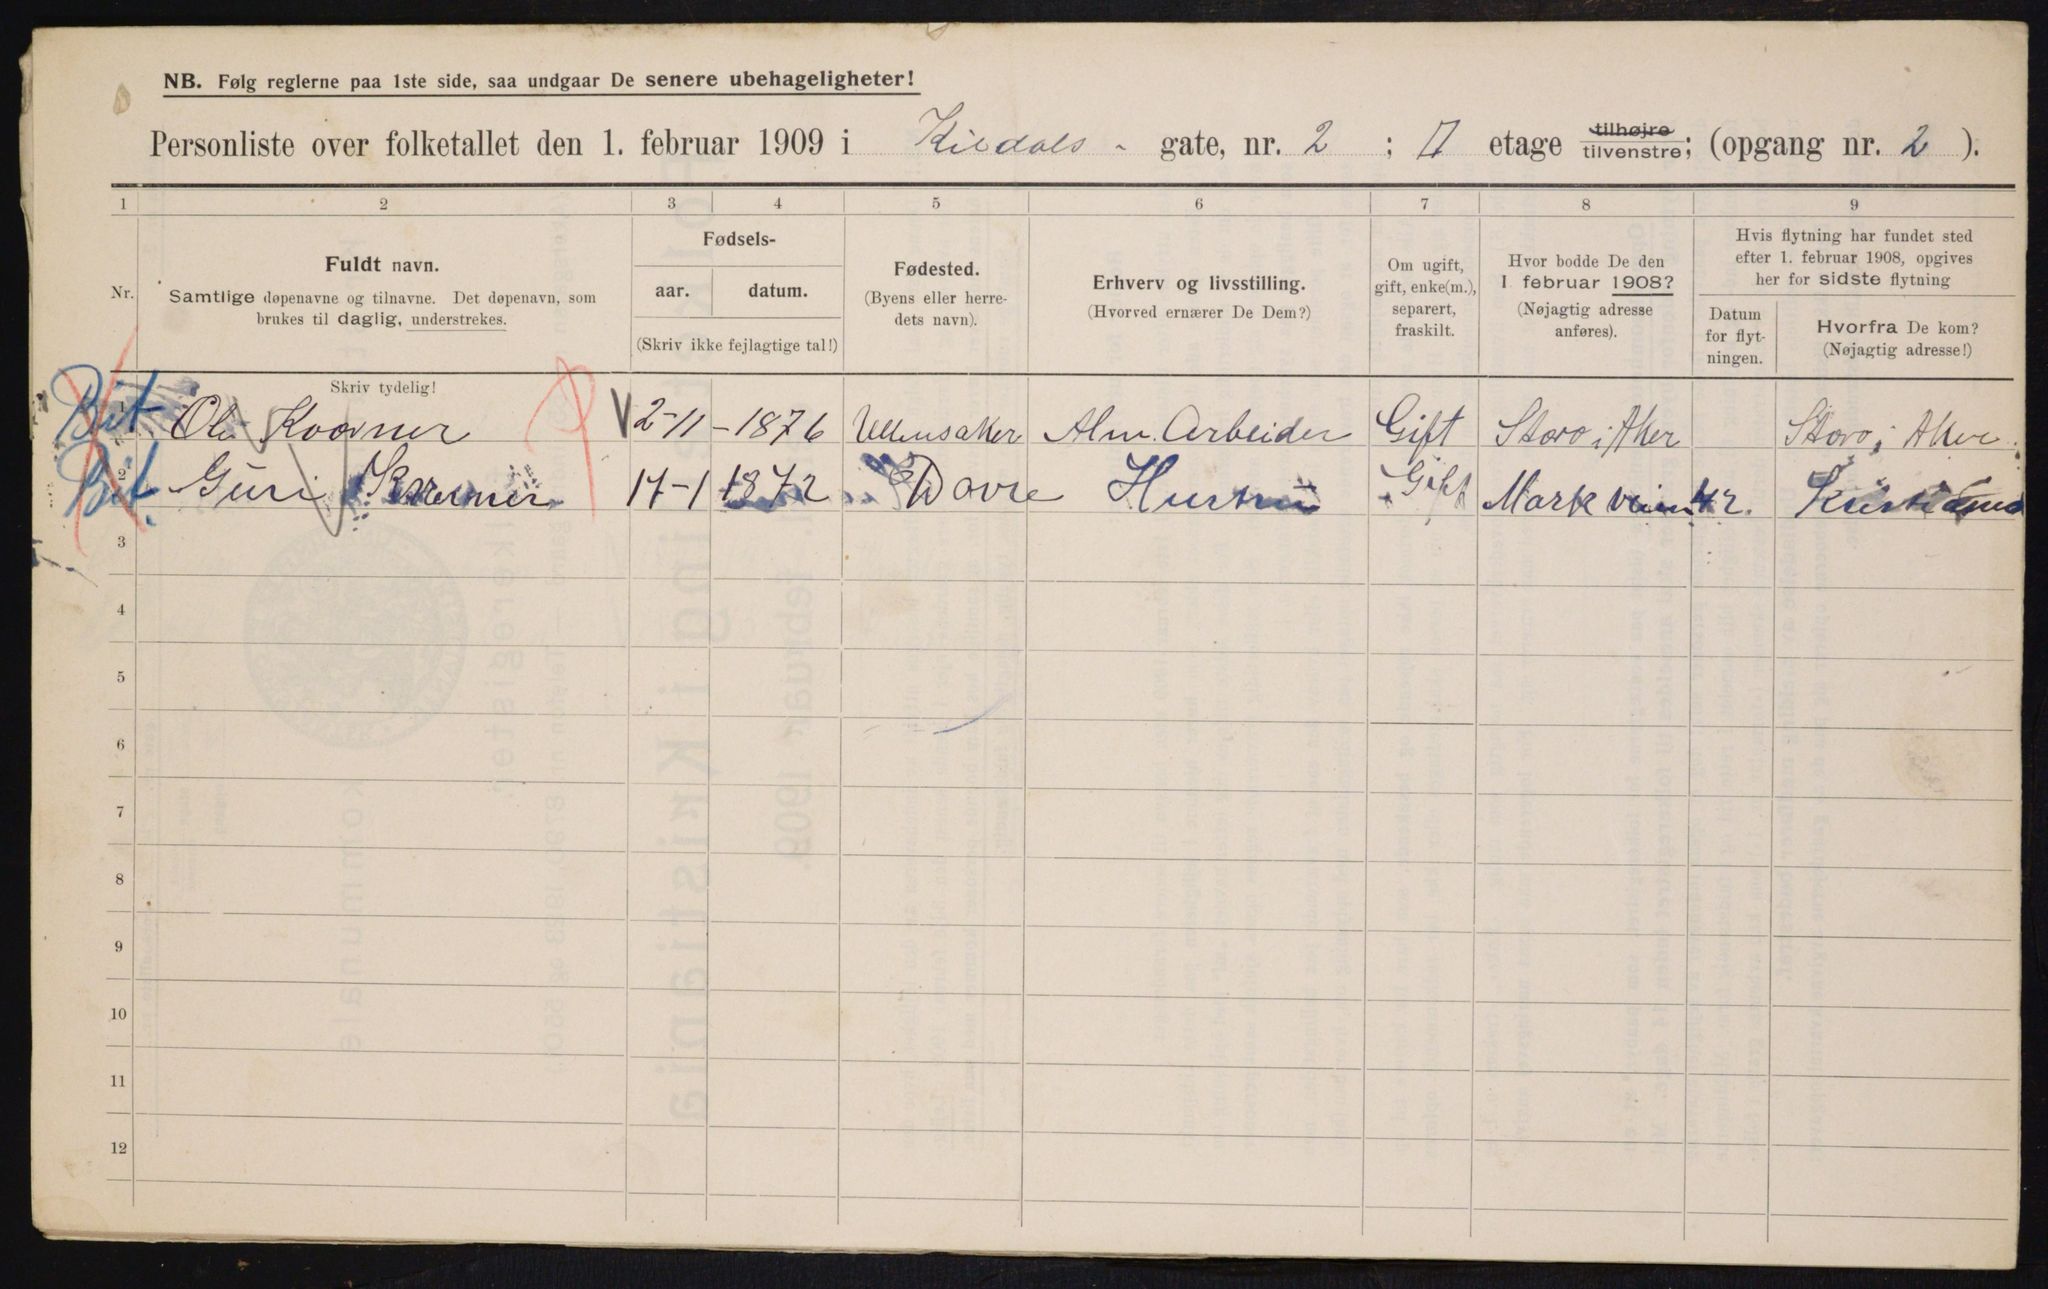 NB. Følg reglerne paa 1ste side, saa undgaar De senere ubehageligheter!
Personliste over folketallet den 1. februar 1909 i Kildals - gate, nr. 2 ; II etage tilhøjre tilvenstre; (opgang nr. 2 ).
1 2 3 4 5 6 7 8 9
Nr.
Fuldt navn.
Samtlige døpenavne og tilnavne. Det døpenavn, som
brukes til daglig, understrekes.
Skriv tydelig!
Fødsels-
aar. datum.
(Skriv ikke fejlagtige tal!)
Fødested.
(Byens eller herre-
dets navn).
Erhverv og livsstilling.
(Hvorved ernærer De Dem?)
Om ugift,
gift, enke(m.),
separert,
fraskilt.
Hvor bodde De den
1 februar 1908?
(Nøjagtig adresse
anføres).
Hvis flytning har fundet sted
efter 1. februar 1908, opgives
her for sidste flytning
Datum
for flyt-
ningen.
Hvorfra De kom?
(Nøjagtig adresse!)
Bit 1 Ole 2-11 - 1876 Ullensaker Alm. Arbeider Gift Storo i Aker Storo i Aker
Bit. 2 Guri 17-1 1872 Dovre Hustru Gift Markveien 42. Kristiania
3
4
5
6
7
8
9
10
11
12